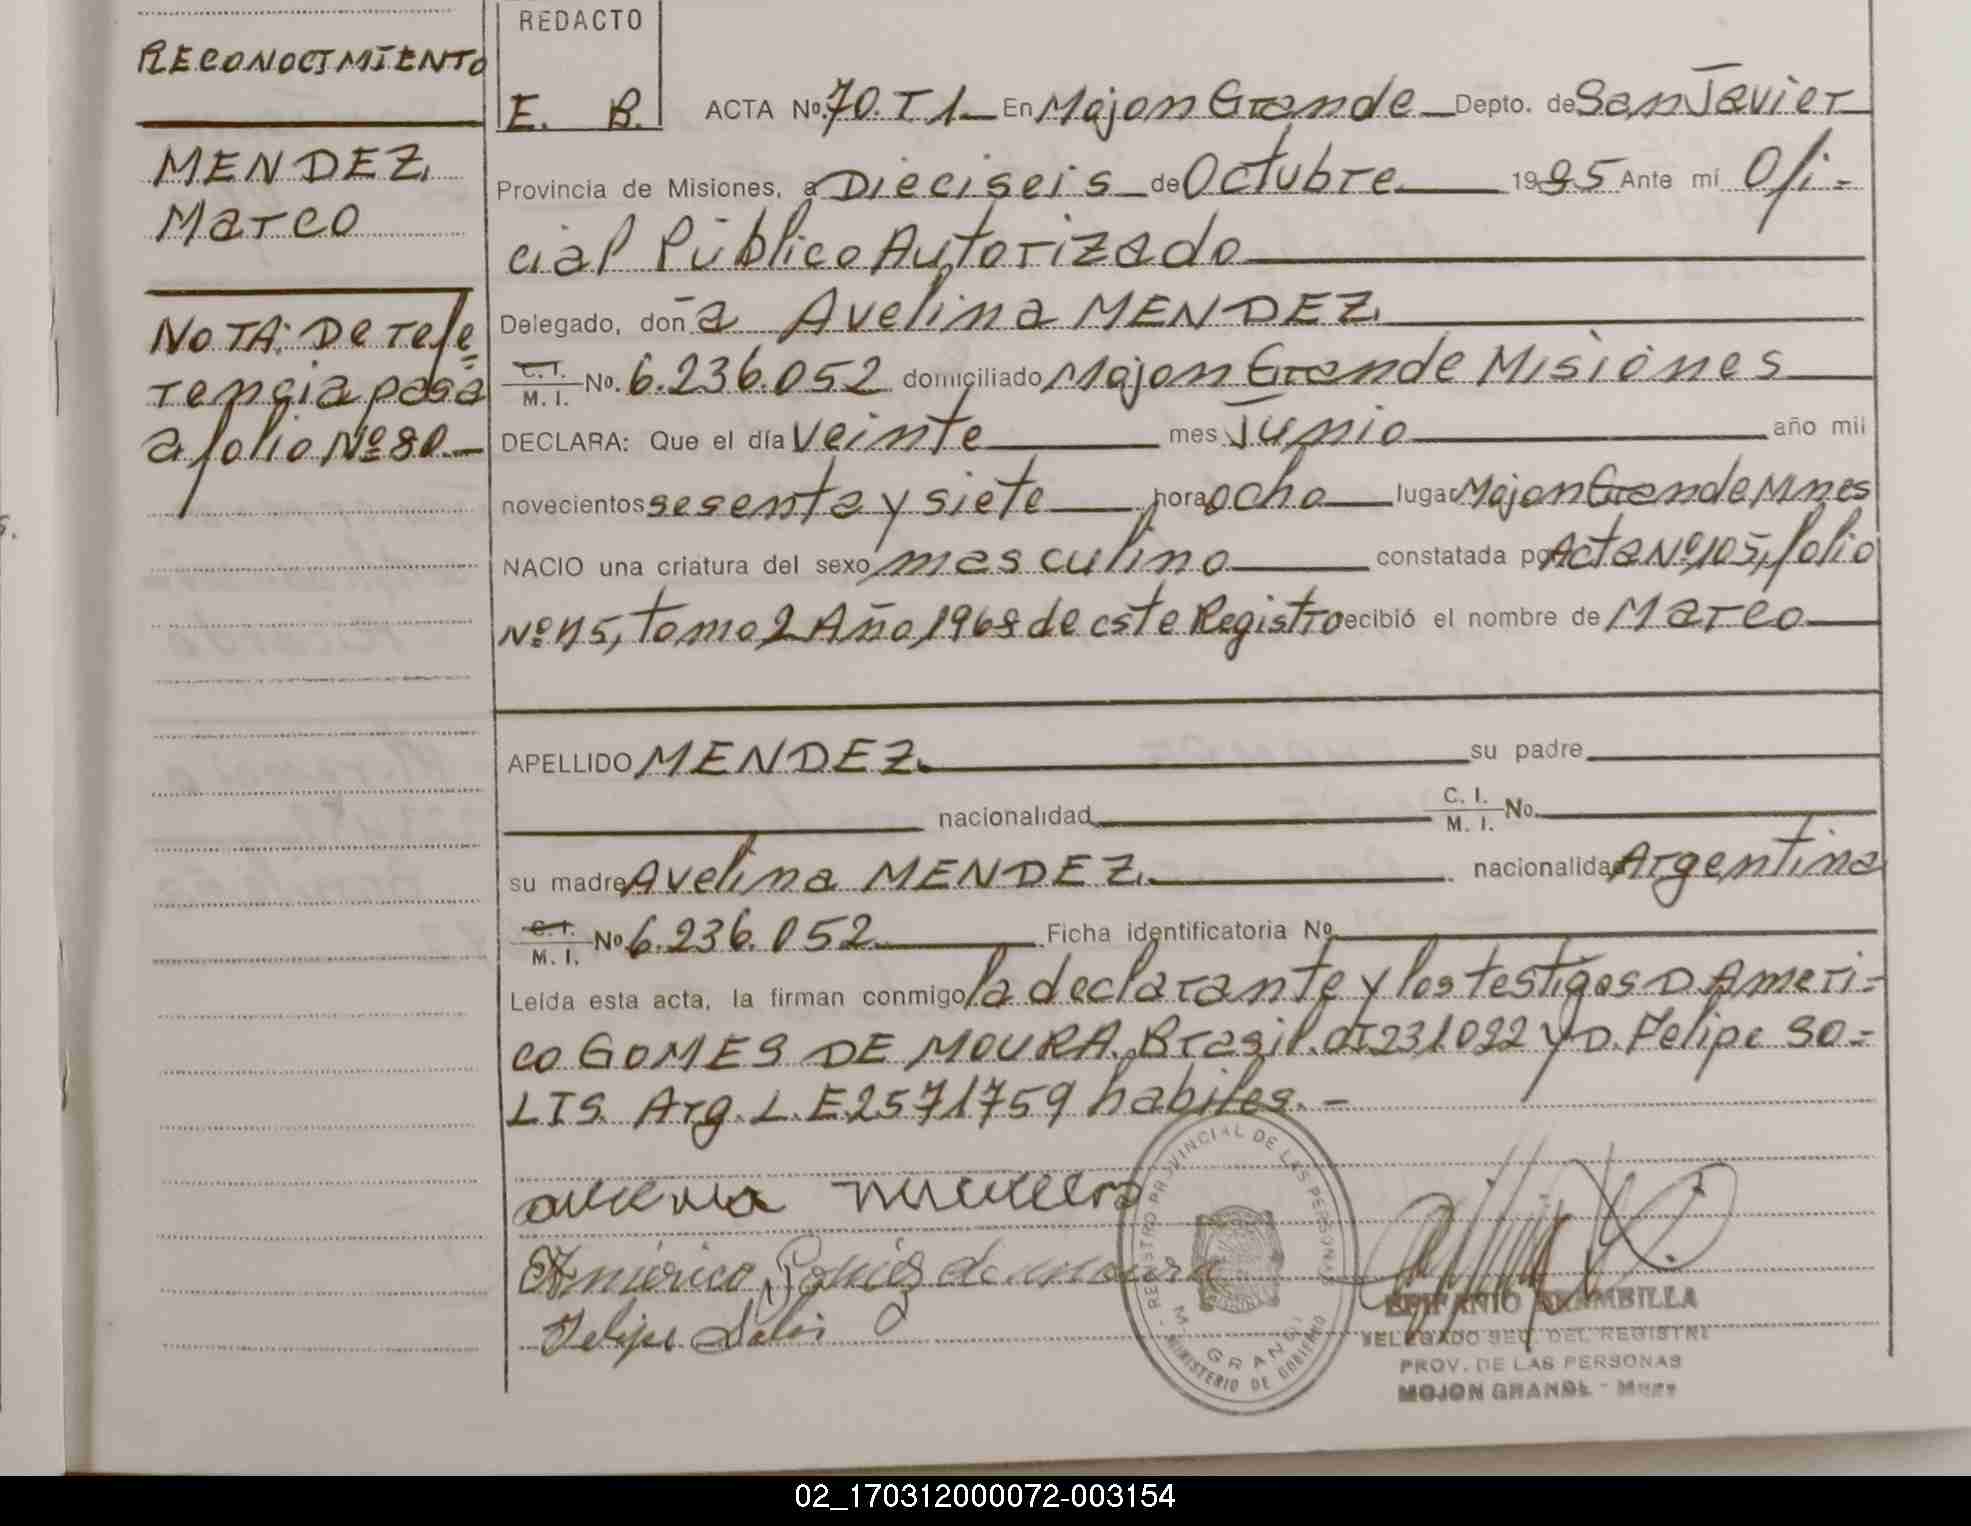 RECONOCIMIENTO
MENDEZ,
Marco
NOTA: De refe=
rencia pasa
a folio Nº 80.-
REDACTO
E. B.
ACTA Nº 70. T 1 En Mojon Grande Depto. de San Javier
Provincia de Misiones, a Dieciseis de Octubre 1995 Ante mí Ofi-
cial Público Autorizado
Delegado, don a Avelina MENDEZ.
C. I. M. I. No. 6.236.052 domiciliado Mojon Grande Misiones
DECLARA: Que el día Veinte mes Junio año mil
novecientos sesenta y siete hora ocho lugar Mojon Grande Mnes
NACIO una criatura del sexo masculino constatada por Acta Nº 105, folio
Nº 45, tomo 2 Año 1968 de este Registro recibió el nombre de Marco
APELLIDO MENDEZ. su padre
nacionalidad C. I. M. I. No.
su madre Avelina MENDEZ. nacionalidad Argentina
C. I. M. I. Nº 6.236.052 Ficha identificatoria Nº
Leída esta acta, la firman conmigo la declarante y los testigos D. Ameri=
co GOMES DE MOURA. Brasil. CI 231022 y D. Felipe SO=
LIS. Arg. L. E 2571759 habiles. -
Américo Gomes de moura
Felipe Solis
REGISTRO PROVINCIAL DE LAS PERSONAS
M. GRANDE
MINISTERIO DE GOBIERNO
EPIFANIO BRAMBILLA
DELEGADO SEC. DEL REGISTRO
PROV. DE LAS PERSONAS
MOJON GRANDE - Mnes
02_170312000072-003154